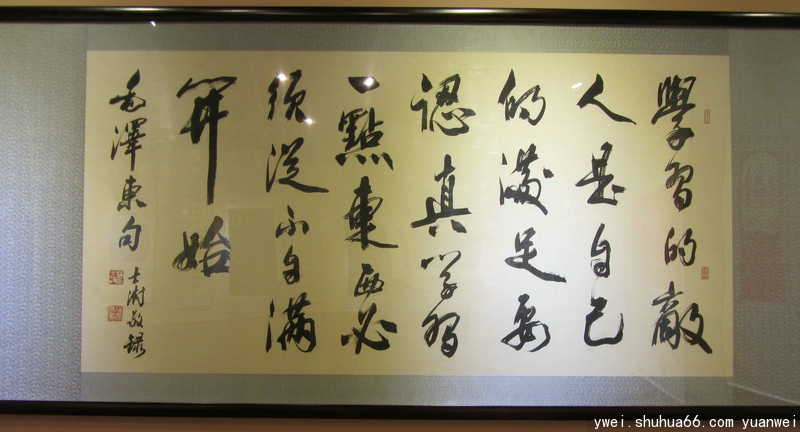 學習的敵
人是自己
的滿足要
認真学習
一點東西必
須從不自滿
開始
毛澤東句
士澍敬録
ywei.shuhua66.com yuanwei